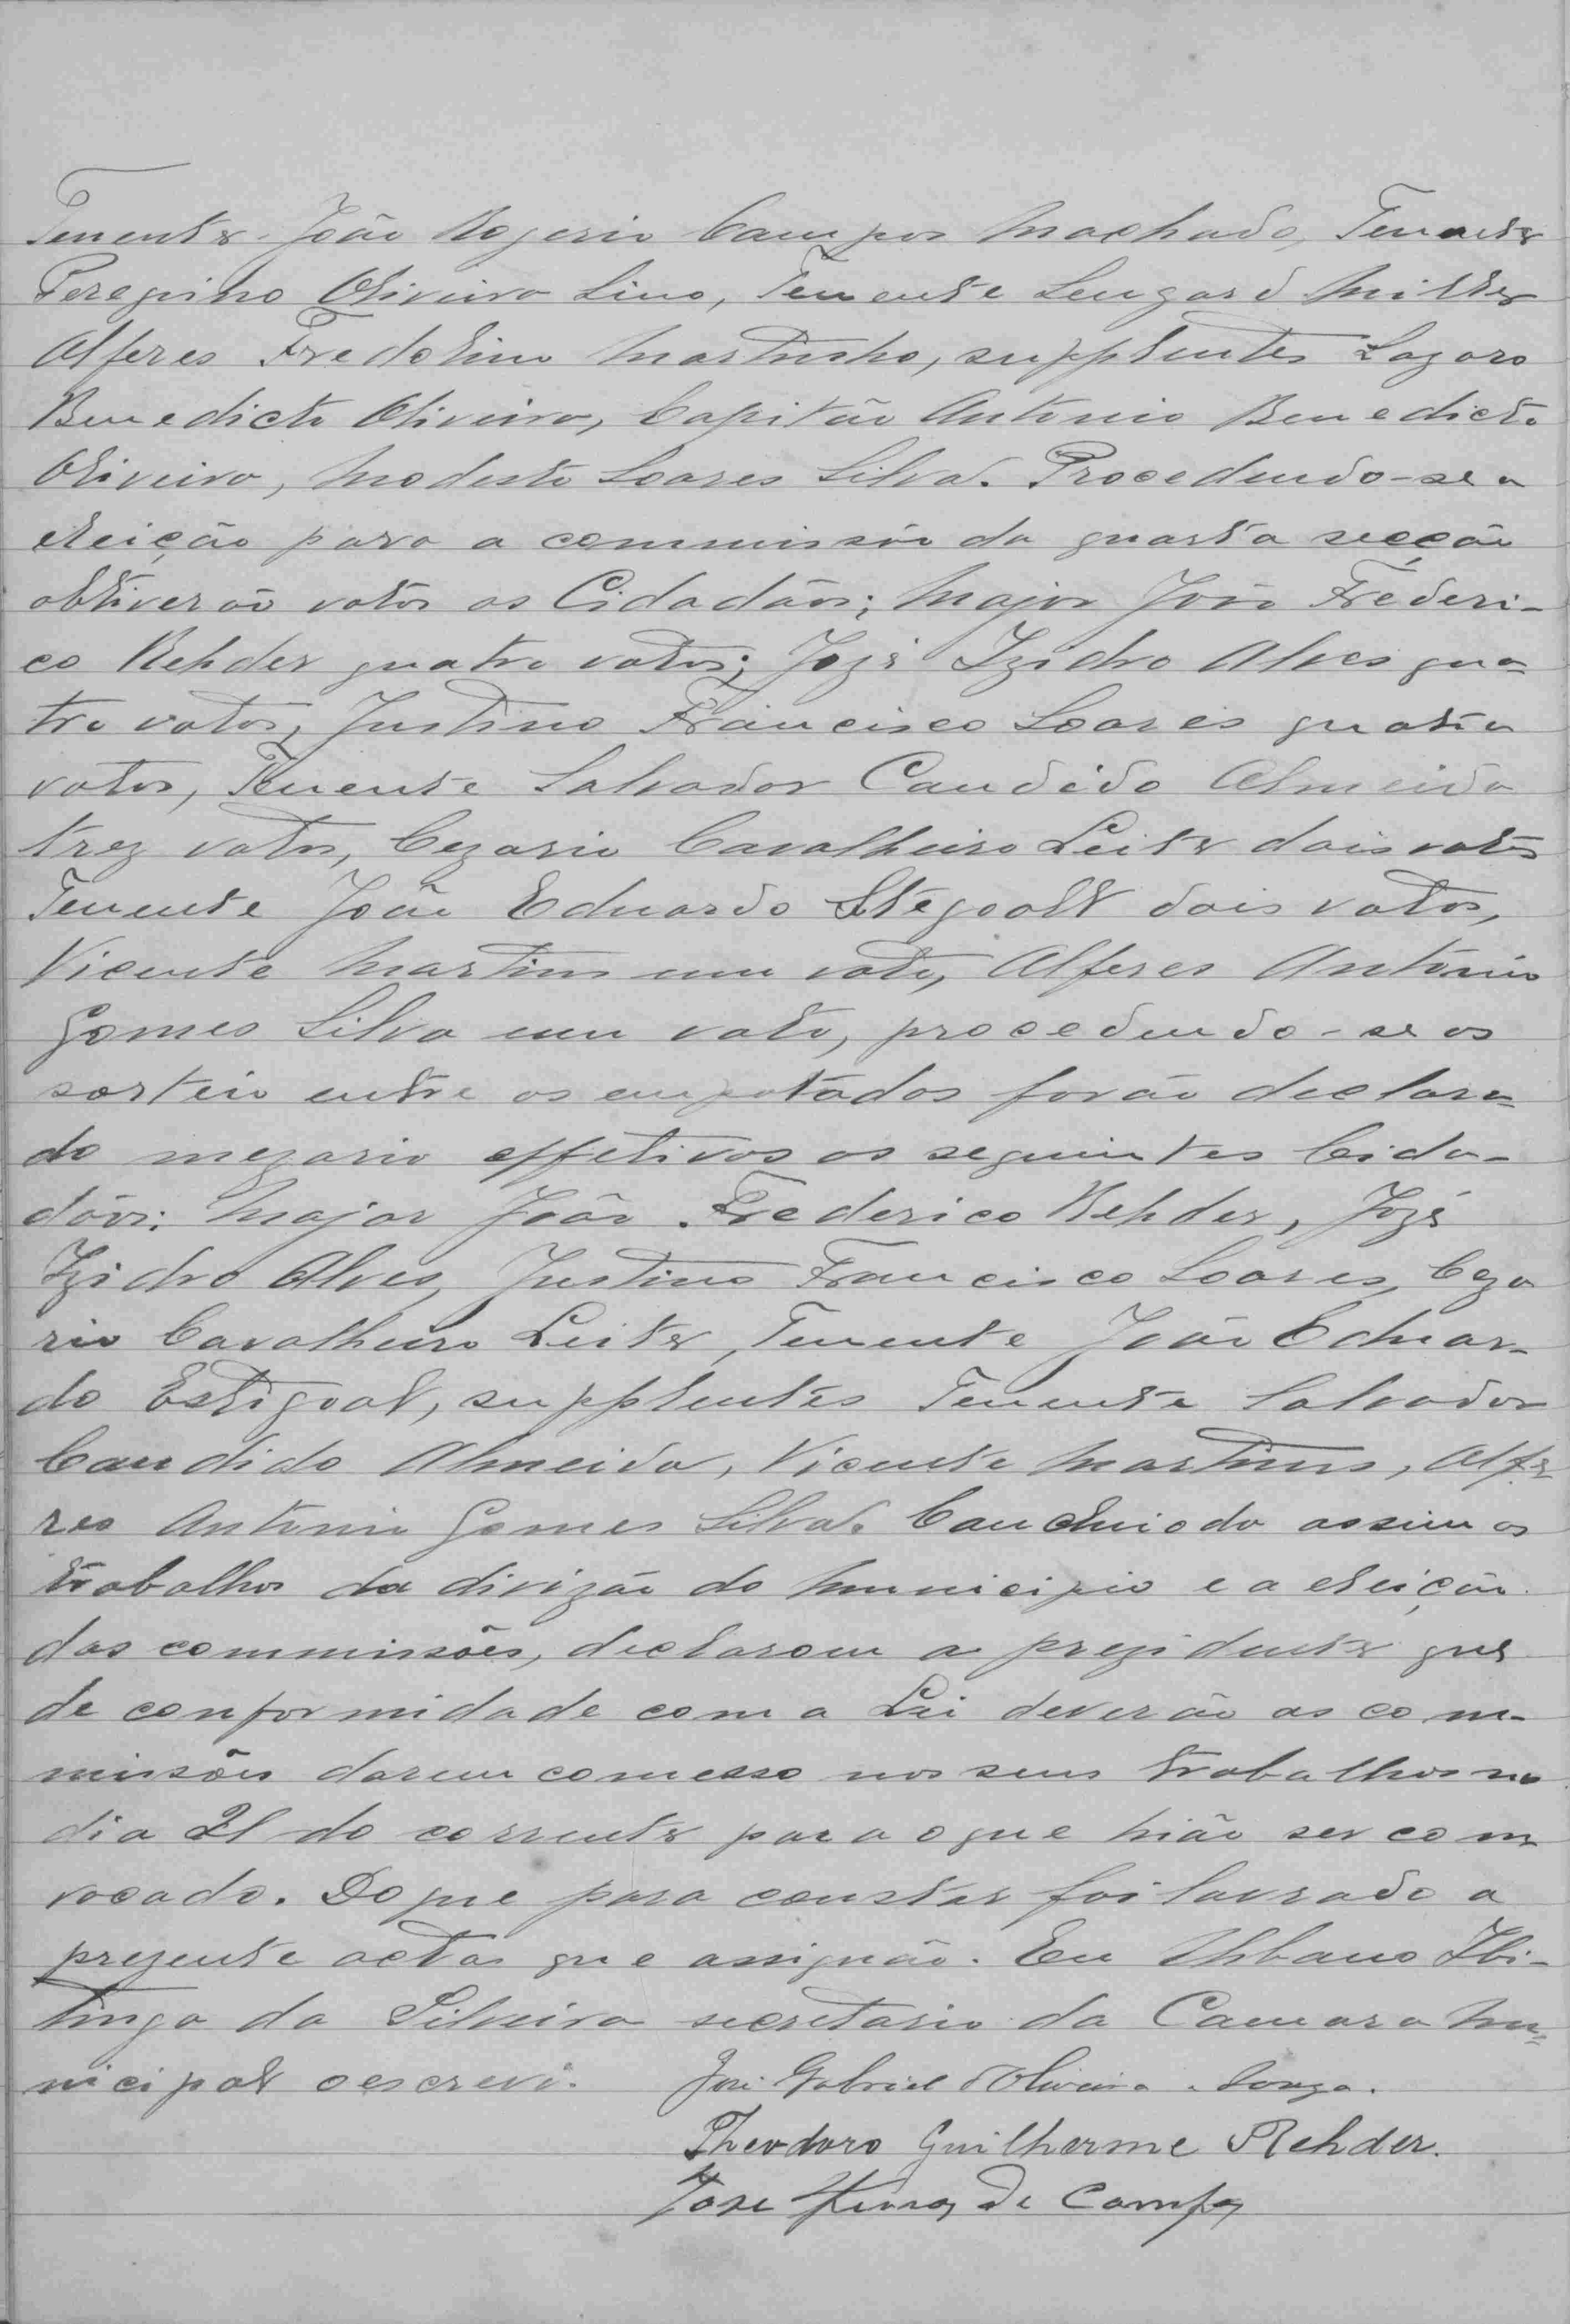 Tenente João Rogerio Campos Machado, Tenente
Peregrino Oliveira Lino, Tenente Lengard Miller
Alferes Fredolino Martinho, supplentes Lazaro
Benedicto Oliveira, Capitão Antonio Benedicto
Oliveira, Modesto Soares Silva. Procedendo-se a
eleição para a commissão da quarta secção
obtiverão votos os Cidadãos; Major João Frederi-
co Rehder quatro votos; Jozé Izidro Alves qua-
tro votos, Justino Francisco Soares quatro
votos, Tenente Salvador Candido Almeida
trez votos, Cezario Cavalheiro Leite dois votos
Tenente João Eduardo Stegoalt dois votos,
Vicente Martins um voto, Alferes Antonio
Gomes Silva um voto, procedendo-se os
sorteio entre os empatados forão declara-
do mezario effetivos os seguintes Cida-
dãos: Major João Frederico Rehder, Jozé
Izidro Alves, Justino Francisco Soares, Ceza
rio Cavalheiro Leite, Tenente João Eduar-
do Estigoal, supplentes Tenente Salvador
Candido Almeida, Vicente Martins, Alfe-
res Antonio Gomes Silva. Conchuiodo assim os
trabalhos da divizão do Municipio e a eleição
das commissões, declarou a prezidente que
de conformidade com a Lei deverão as com-
missões darem comesso nos seus trabalhos no
dia 21 do corrente para o que hião ser com
vocado. Do que para constar foi lavrado a
prezente actas que assignão. Eu Urbano Ibi-
tinga da Silveira secretario da Camara Mu-
nicipal o escrevi. José Gabriel d'Oliveira Souza.
Theodoro Guilherme Rehder.
Jose de Campos